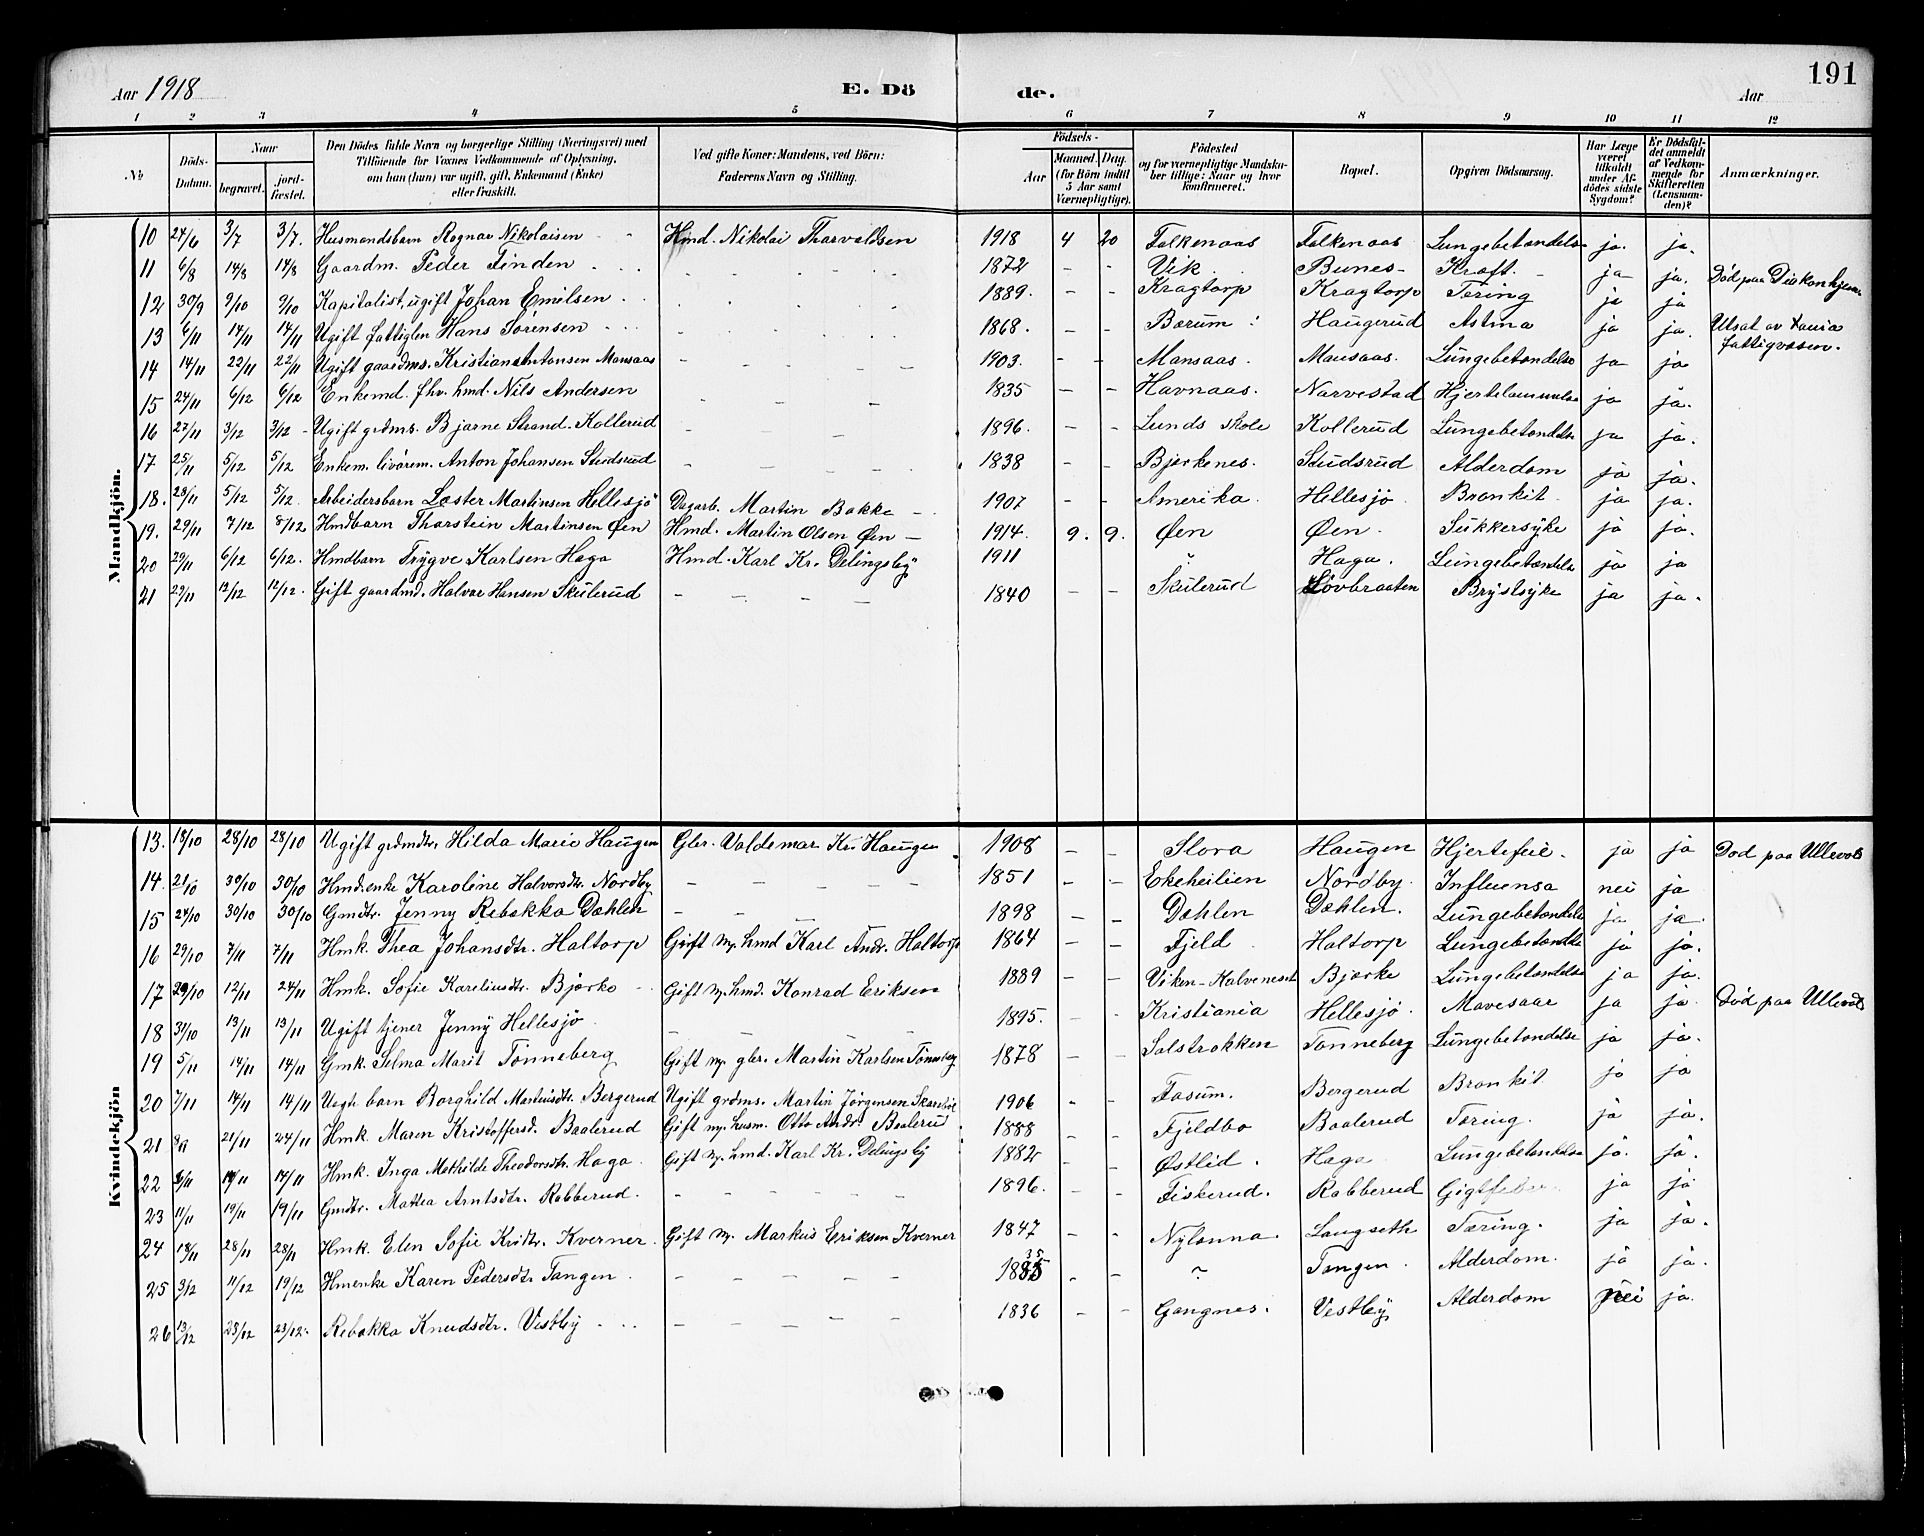 Aar 1918 E. Dö de. Aar 191
1 2 3 4 5 6 7 8 9 10 11 12
No Döds-Datum. Naar begravet. jord-fæstet. Den Dödes fulde Navn og borgerlige Stilling (Næringsvei) med Tilföiende for Voxnes Vedkommende af Oplysning, om han (hun) var ugift, gift, Enkemand (Enke) eller fraskilt. Ved gifte Koner: Mandens, ved Börn: Faderens Navn og Stilling. Födsels- Aar Maaned. Dag. (for Börn indtil 5 Aar samt Værnepligtige). Födested og for værnepligtige Mandskaber tillige: Naar og hvor konfirmeret. Bopæl. Opgiven Dödsaarsag. Har Læge været tilkaldt under Afdödes sidste Sygdom? Er Dödsfaldet anmeldt af Vedkommende for Skifteretten (Lensmanden)? Anmærkninger.
Mandkjön.
10 24/6 3/7 3/7. Husmandsbarn Ragnar Nikolaisen Hmd. Nikolai Thorvaldsen 1918 4 20 Falkenaas Falkenaas Lungebetændelse ja. ja.
11 6/8 14/8 14/8 Gaardm. Peder Finden 1872 - - Vik Bunes- Kræft. ja ja. Död paa Diakonhjem.
12 30/9 9/10 9/10 Kapitalist, ugift Johan Emilsen 1889. - - Kragtorp Kragtorp Tæring ja ja
13 6/11 14/11 14/11 Ugift fattiglem Hans Sörensen 1868. - - Bærum Haugerud Astma ja ja. Utsat av fattigvæsen.
14 14/11 22/11 22/11 Ugift gaardms. Kristian Antonsen Mansaas - 1903. - - Mansaas. Mansaas. Lungebetændelse ja ja
15 24/11 6/12 6/12 Enkemd. fhv. hmd. Nils Andersen - 1835 - - Havnaas. Narvestad Hjertelammelse ja ja.
16 27/11 3/12 3/12 Ugift grdms. Bjarne Strand Kollerud - 1896. - - Lunds skole Kollerud Lungebetændelse ja ja.
17 25/11 5/12 5/12 Enkem. livörem. Anton Johansen Studsrud - 1838 - - Bjerkenes. Studsrud Alderdom ja ja.
18. 28/11 5/12 5/12. Arbeidersbarn Lester Martinsen Hellesjö Dagarb. Martin Bakke 1907 - - Amerika. Hellesjö Bronkit. ja ja.
19. 29/11 7/12 8/12 Hmdbarn Thorstein Martinsen Øen Hmd. Martin Olsen Øen - 1914. 9. 9. Øen Øen. Sukkersyke ja ja.
20 29/11 6/12 6/12. Hmdbarn Trygve Karlsen Haga Hmd. Karl Kr. Delingsby 1911 " Haga. Lungebetændelse ja ja
21 29/11 12/12 12/12. Gift gaardmd. Halvor Hansen Skulerud - 1840 - - Skulerud Lövbraaten Brystsyke ja ja.
Kvindekjön
13. 18/10 28/10 28/10 Ugift grdmdtr. Hilda Marie Haugen Gbr. Valdemar Kr. Haugen 1908 - - Slora Haugen Hjertefeil. ja ja Död paa Ullevol
14. 21/10 30/10 30/10 Hmd.enke Karoline Halvorsdtr. Nordby - 1851 - - Ekeheilien Nordby. Influensa nei ja
15 24/10 30/10 30/10 Gmdtr. Jenny Rebekka Dæhlen - 1898 - - Dæhlen Dæhlen. Lungebetændelse ja ja.
16 29/10 7/11 7/11 Hmk. Thea Johansdtr. Haltorp Gift m. hmd Karl Andr. Haltorp 1864 - - Fjeld Haltorp Lungebetændelse ja ja.
17 29/10 12/11 24/11 Hmk. Sofie Kareliusdtr. Bjørke Gift m. hmd. Konrad Eriksen 1889 - - Viken-Halvenes Bjørke Lungebetændelse ja ja.
18 31/10 13/11 13/11 Ugift tjener Jenny Hellesjö - 1895. - - Kristiania Hellesjö. Mavesaar ja ja. Död paa Ullevol
19 5/11 14/11 14/11 Gmk. Selma Marit Tönneberg Gift m. gbr. Martin Karlsen Tönneberg 1878 - - Salstrokken Tönneberg Lungebetændelse ja ja.
20 7/11 14/11 14/11 Uegte barn Borghild Martinsdtr. Bergerud Ugift grdms. Martin Jörgensen 1906 - - Fosum. Bergerud Bronkit ja ja
21 8/11 21/11 24/11 Hmk. Maren Kristoffersd. Baalerud Gift m. husm. Otto Andr. Baalerud 1888 - - Fjeldbo Baalerud Tæring. ja ja.
22 9/11 19/11 19/11 Hmk. Inga Mathilde Theodorsdtr. Haga. Gift m. hmd. Karl Kr. Delingsby 1882 - - Østlid. Haga Lungebetændelse ja. ja.
23 11/11 19/11 19/11 Gmdtr. Mathea Arntsdtr. Rabberud. - 1896. - - Fiskerud. Rabberud Gigtfeber ja ja
24 18/11 28/11 28/11 Hmk. Elen Sofie Kridtr. Kverner. Gift m. Markus Eriksen Kverner 1847 - - Nylænna. Langseth Tæring. ja ja.
25 3/12 11/12 19/12 Hmenke Karen Pedersdtr. Tangen. - 1835 - - ? Tangen. Alderdom. ja ja.
26 13/12 23/12 23/12. Rebekka Knudsdtr. Vestby - 1836 - - Gangnes. Vestby Alderdom nei ja.